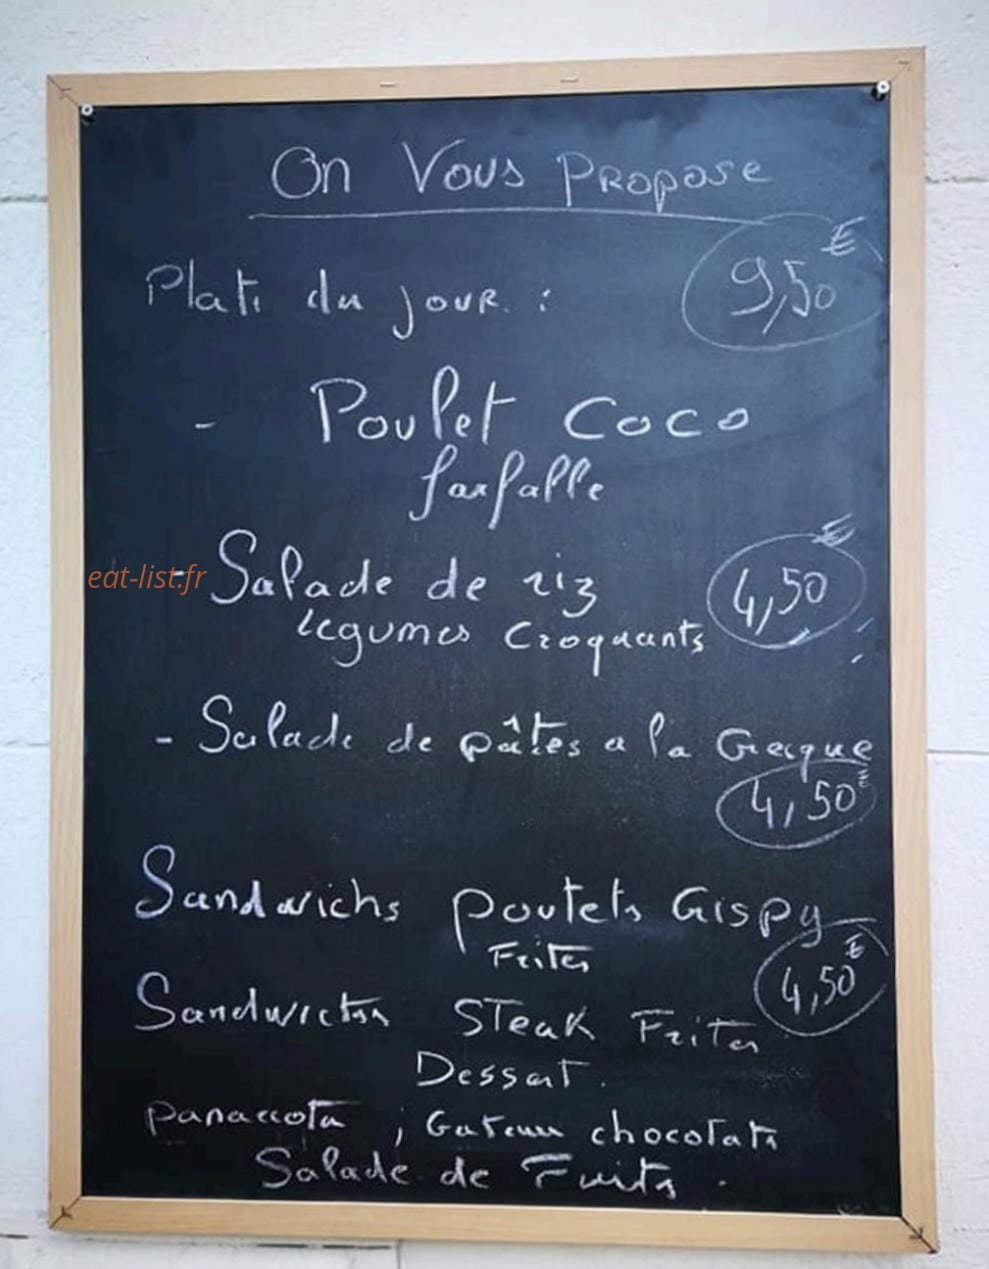 On Vous Propose
Plats du jour : 9,50 €
- Poulet Coco
farfalle
eat-list.fr
- Salade de riz 4,50 €
légumes croquants
- Salade de pâtes a la Grecque
4,50 €
Sandwichs poulets Crispy
Frites
4,50 €
Sandwichs STeak Frites
Dessert.
panaccota , Gateau chocolats
Salade de Fruits.